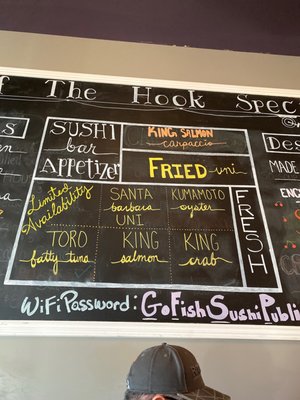 The Hook Spec
SUSHI
bar
Appetizer
KING SALMON
carpaccio
FRIED uni
Limited
Availability
SANTA
barbara
UNI
KUMAMOTO
oyster
TORO
fatty tuna
KING
salmon
KING
crab
FRESH
Des
MADE
WiFi Password: GoFishSushiPubli